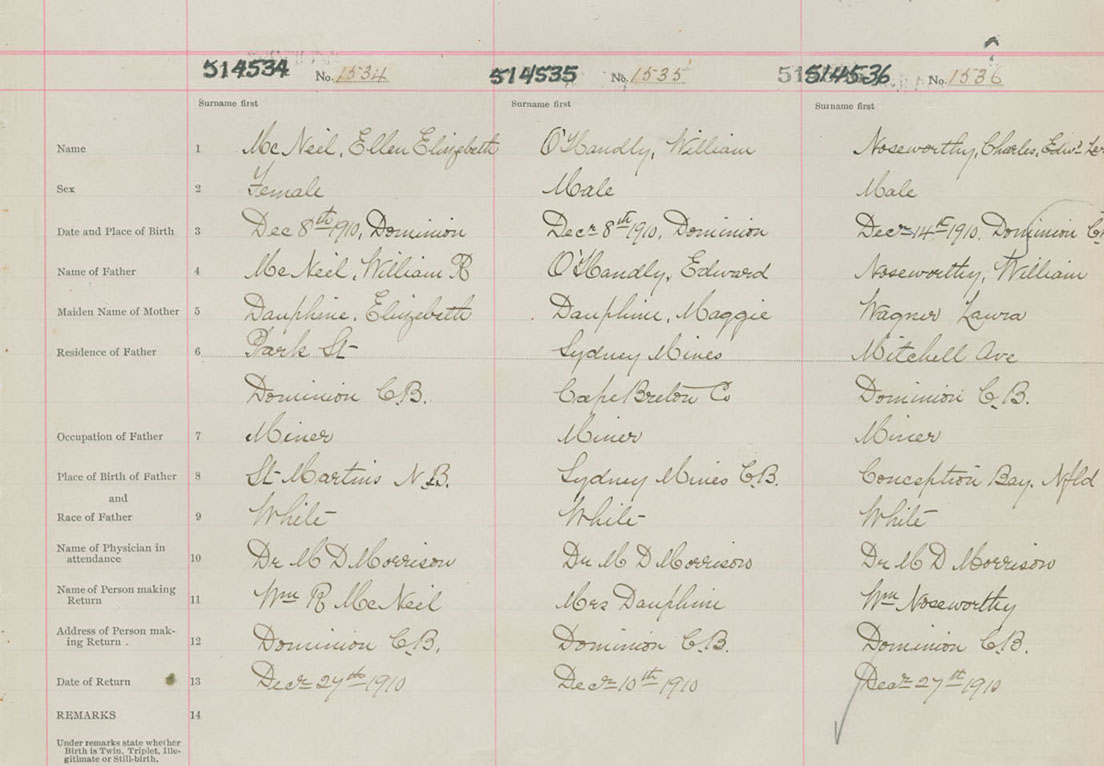 514534 No. 1534 514535 No. 1535 514536 No. 1536
Surname first Surname first Surname first
Name 1 McNeil, Ellen Elizebeth O'Handly, William Noseworthy, Charles, Edwd
Sex 2 Female Male Male
Date and Place of Birth 3 Dec 8th 1910, Dominion Decr 8th 1910, Dominion Decr 14th 1910. Dominion
Name of Father 4 McNeil, William R O'Handly, Edward Noseworthy, William
Maiden Name of Mother 5 Dauphine, Elizebeth Dauphine, Maggie Wagner Laura
Residence of Father 6 Park St Sydney Mines Mitchell Ave
Dominion C.B. Cape Breton Co Dominion C.B.
Occupation of Father 7 Miner Miner Miner
Place of Birth of Father 8 St Martins N.B. Sydney Mines C.B. Conception Bay. Nfld
and
Race of Father 9 White White White
Name of Physician in
attendance 10 Dr M D Morrison Dr M D Morrison Dr M D Morrison
Name of Person making
Return 11 Wm R McNeil Mrs Dauphine Wm Noseworthy
Address of Person mak-
ing Return . 12 Dominion C.B. Dominion C.B. Dominion C.B.
Date of Return 13 Decr 27th 1910 Decr 10th 1910 Decr 27th 1910
REMARKS 14
Under remarks state whether
Birth is Twin, Triplet, Ille-
gitimate or Still-birth.